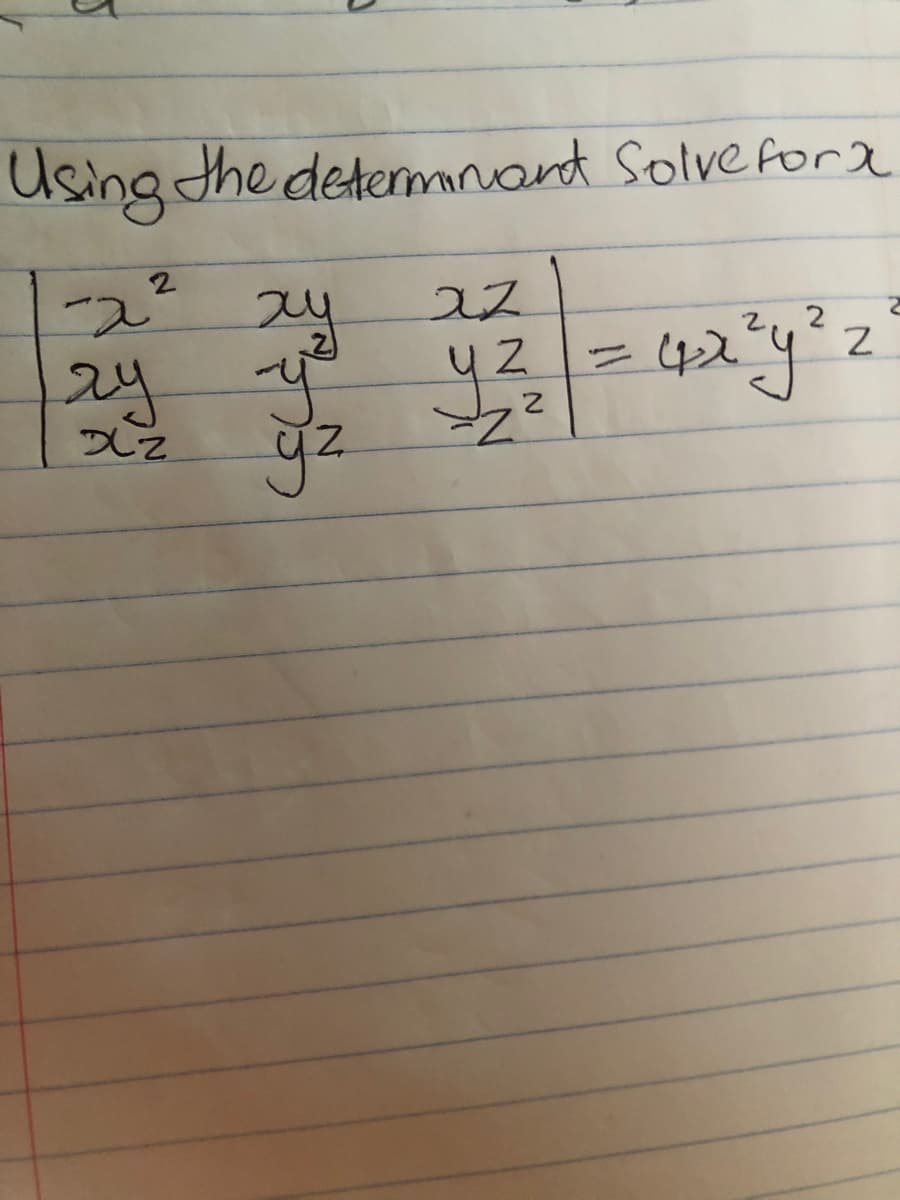 Using the determinant Solve for x
| -x² xy xz |
| xy -y² yz | = 4x²y²z²
| xz yz -z² |